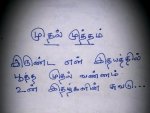 முதல் முத்தம்
இருண்ட என் இதயத்தில்
பூத்த முதல் வண்ணம்
உன் இதழ்களின் சுவடு...